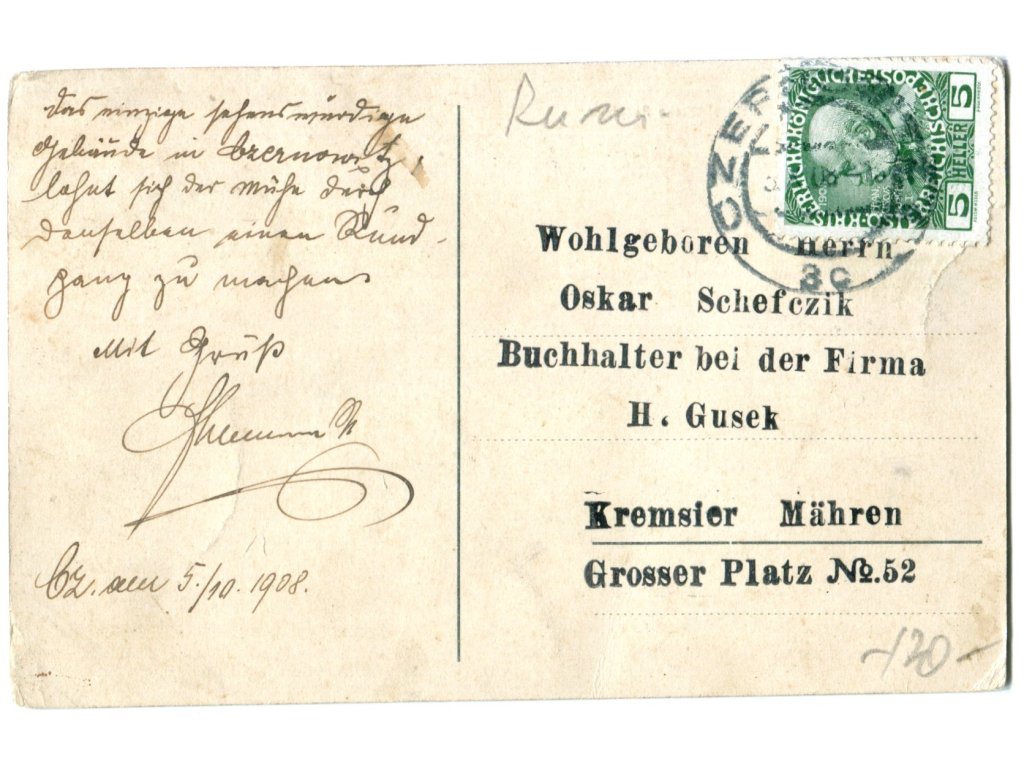 das einzige sehenswürdige
Gebäude in Czernowitz,
lohnt sich der Mühe durch
denselben einen Rund-
gang zu machen
Mit Gruß
Cz. am 5./10. 1908.
CZER
3c
KÖNIGLICHE
5 HELLER 5
Wohlgeboren Herrn
Oskar Schefczik
Buchhalter bei der Firma
H. Gusek
Kremsier Mähren
Grosser Platz No.52
120-